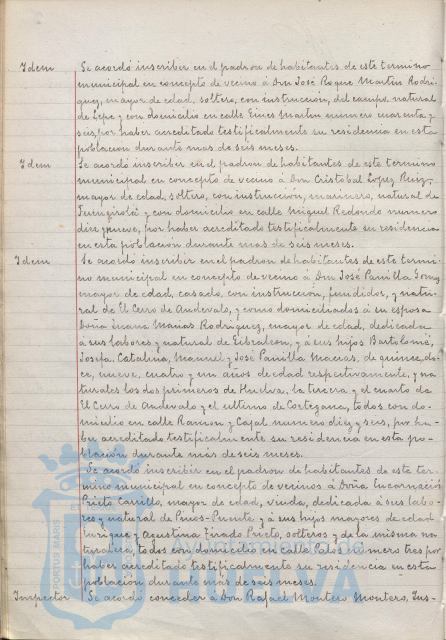 Idem Se acordó inscribir en el padron de habitantes de este termino
municipal en concepto de vecino á Don José Roque Martin Rodri-
guez, mayor de edad, soltero, con instrucción, del campo, natural
de Lepe y con domicilio en calle Gines Martin numero cuarenta y
seis, por haber acreditado testificalmente su residencia en esta
poblacion durante mas de seis meses.
Idem Se acordó inscribir en el padron de habitantes de este termino
municipal en concepto de vecino á Don Cristobal Lopez Ruiz,
mayor de edad, soltero, con instrucción, marinero, natural de
Fuengirola y con domicilio en calle Miguel Redondo numero
diez y nueve, por haber acreditado testificalmente su residencia
en esta población durante mas de seis meses.
Idem Se acordó inscribir en el padron de habitantes de este termi-
no municipal en concepto de vecino á Don José Panilla Gomez
mayor de edad, casado, con instrucción, fundidor, y natu-
ral de El Cerro de Andevalo, y como domiciliados á su esposa
Doña Juana Macias Rodriguez, mayor de edad, dedicada
á sus labores y natural de Gibraleon, y á sus hijos Bartolomé,
Josefa, Catalina, Manuel y José Panilla Macias, de quince, do-
ce, nueve, cuatro y un años de edad respectivamente, y na-
turales los dos primeros de Huelva, la tercera y el cuarto de
El Cerro de Andevalo y el ultimo de Cortegana, todos con do-
micilio en calle Ramon y Cajal numero diez y seis, por ha-
ber acreditado testificalmente su residencia en esta po-
blación durante más de seis meses.
Se acordó inscribir en el padron de habitantes de este ter-
mino municipal en concepto de vecinos á Doña Encarnació
Prieto Carrillo, mayor de edad, viuda, dedicada á sus labo-
res y natural de Pinos-Puente, y á sus hijos mayores de edad
Enrique y Agustina Tirado Prieto, solteros y de la misma na-
turaleza, todos con domicilio en calle Palos numero tres por
haber acreditado testificalmente su residencia en esta
población durante más de seis meses.
Inspector Se acordó conceder á Don Rafael Montero Montero, Ins-
PORTUS MARIS